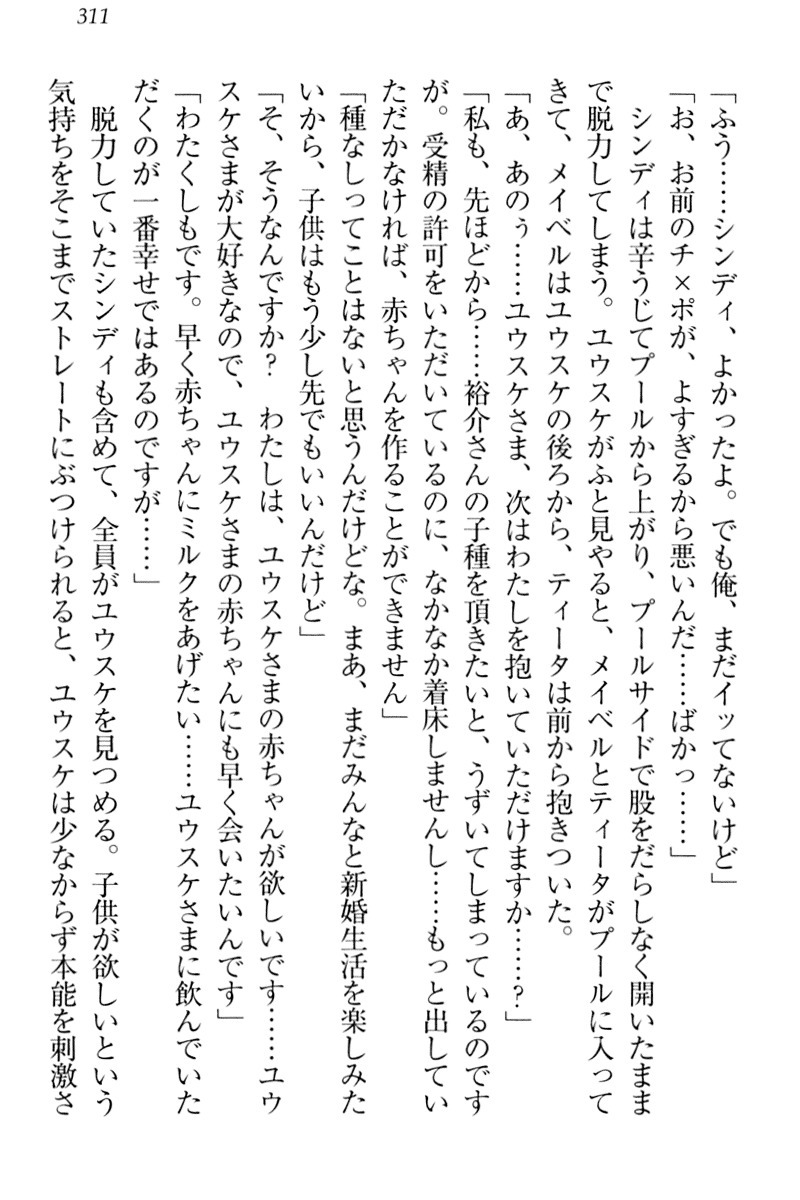 311
「ふう……シンディ、よかったよ。でも俺、まだイッてないけど」
「お、お前のチ×ポが、よすぎるから悪いんだ……ばかっ……」
　シンディは辛うじてプールから上がり、プールサイドで股をだらしなく開いたまま
で脱力してしまう。ユウスケがふと見やると、メイベルとティータがプールに入って
きて、メイベルはユウスケの後ろから、ティータは前から抱きついた。
「あ、あのぅ……ユウスケさま、次はわたしを抱いていただけますか……？」
「私も、先ほどから……裕介さんの子種を頂きたいと、うずいてしまっているのです
が。受精の許可をいただいているのに、なかなか着床しませんし……もっと出してい
ただかなければ、赤ちゃんを作ることができません」
「種なしってことはないと思うんだけどな。まあ、まだみんなと新婚生活を楽しみた
いから、子供はもう少し先でもいいんだけど」
「そ、そうなんですか？　わたしは、ユウスケさまの赤ちゃんが欲しいです……ユウ
スケさまが大好きなので、ユウスケさまの赤ちゃんにも早く会いたいんです」
「わたくしもです。早く赤ちゃんにミルクをあげたい……ユウスケさまに飲んでいた
だくのが一番幸せではあるのですが……」
　脱力していたシンディも含めて、全員がユウスケを見つめる。子供が欲しいという
気持ちをそこまでストレートにぶつけられると、ユウスケは少なからず本能を刺激さ